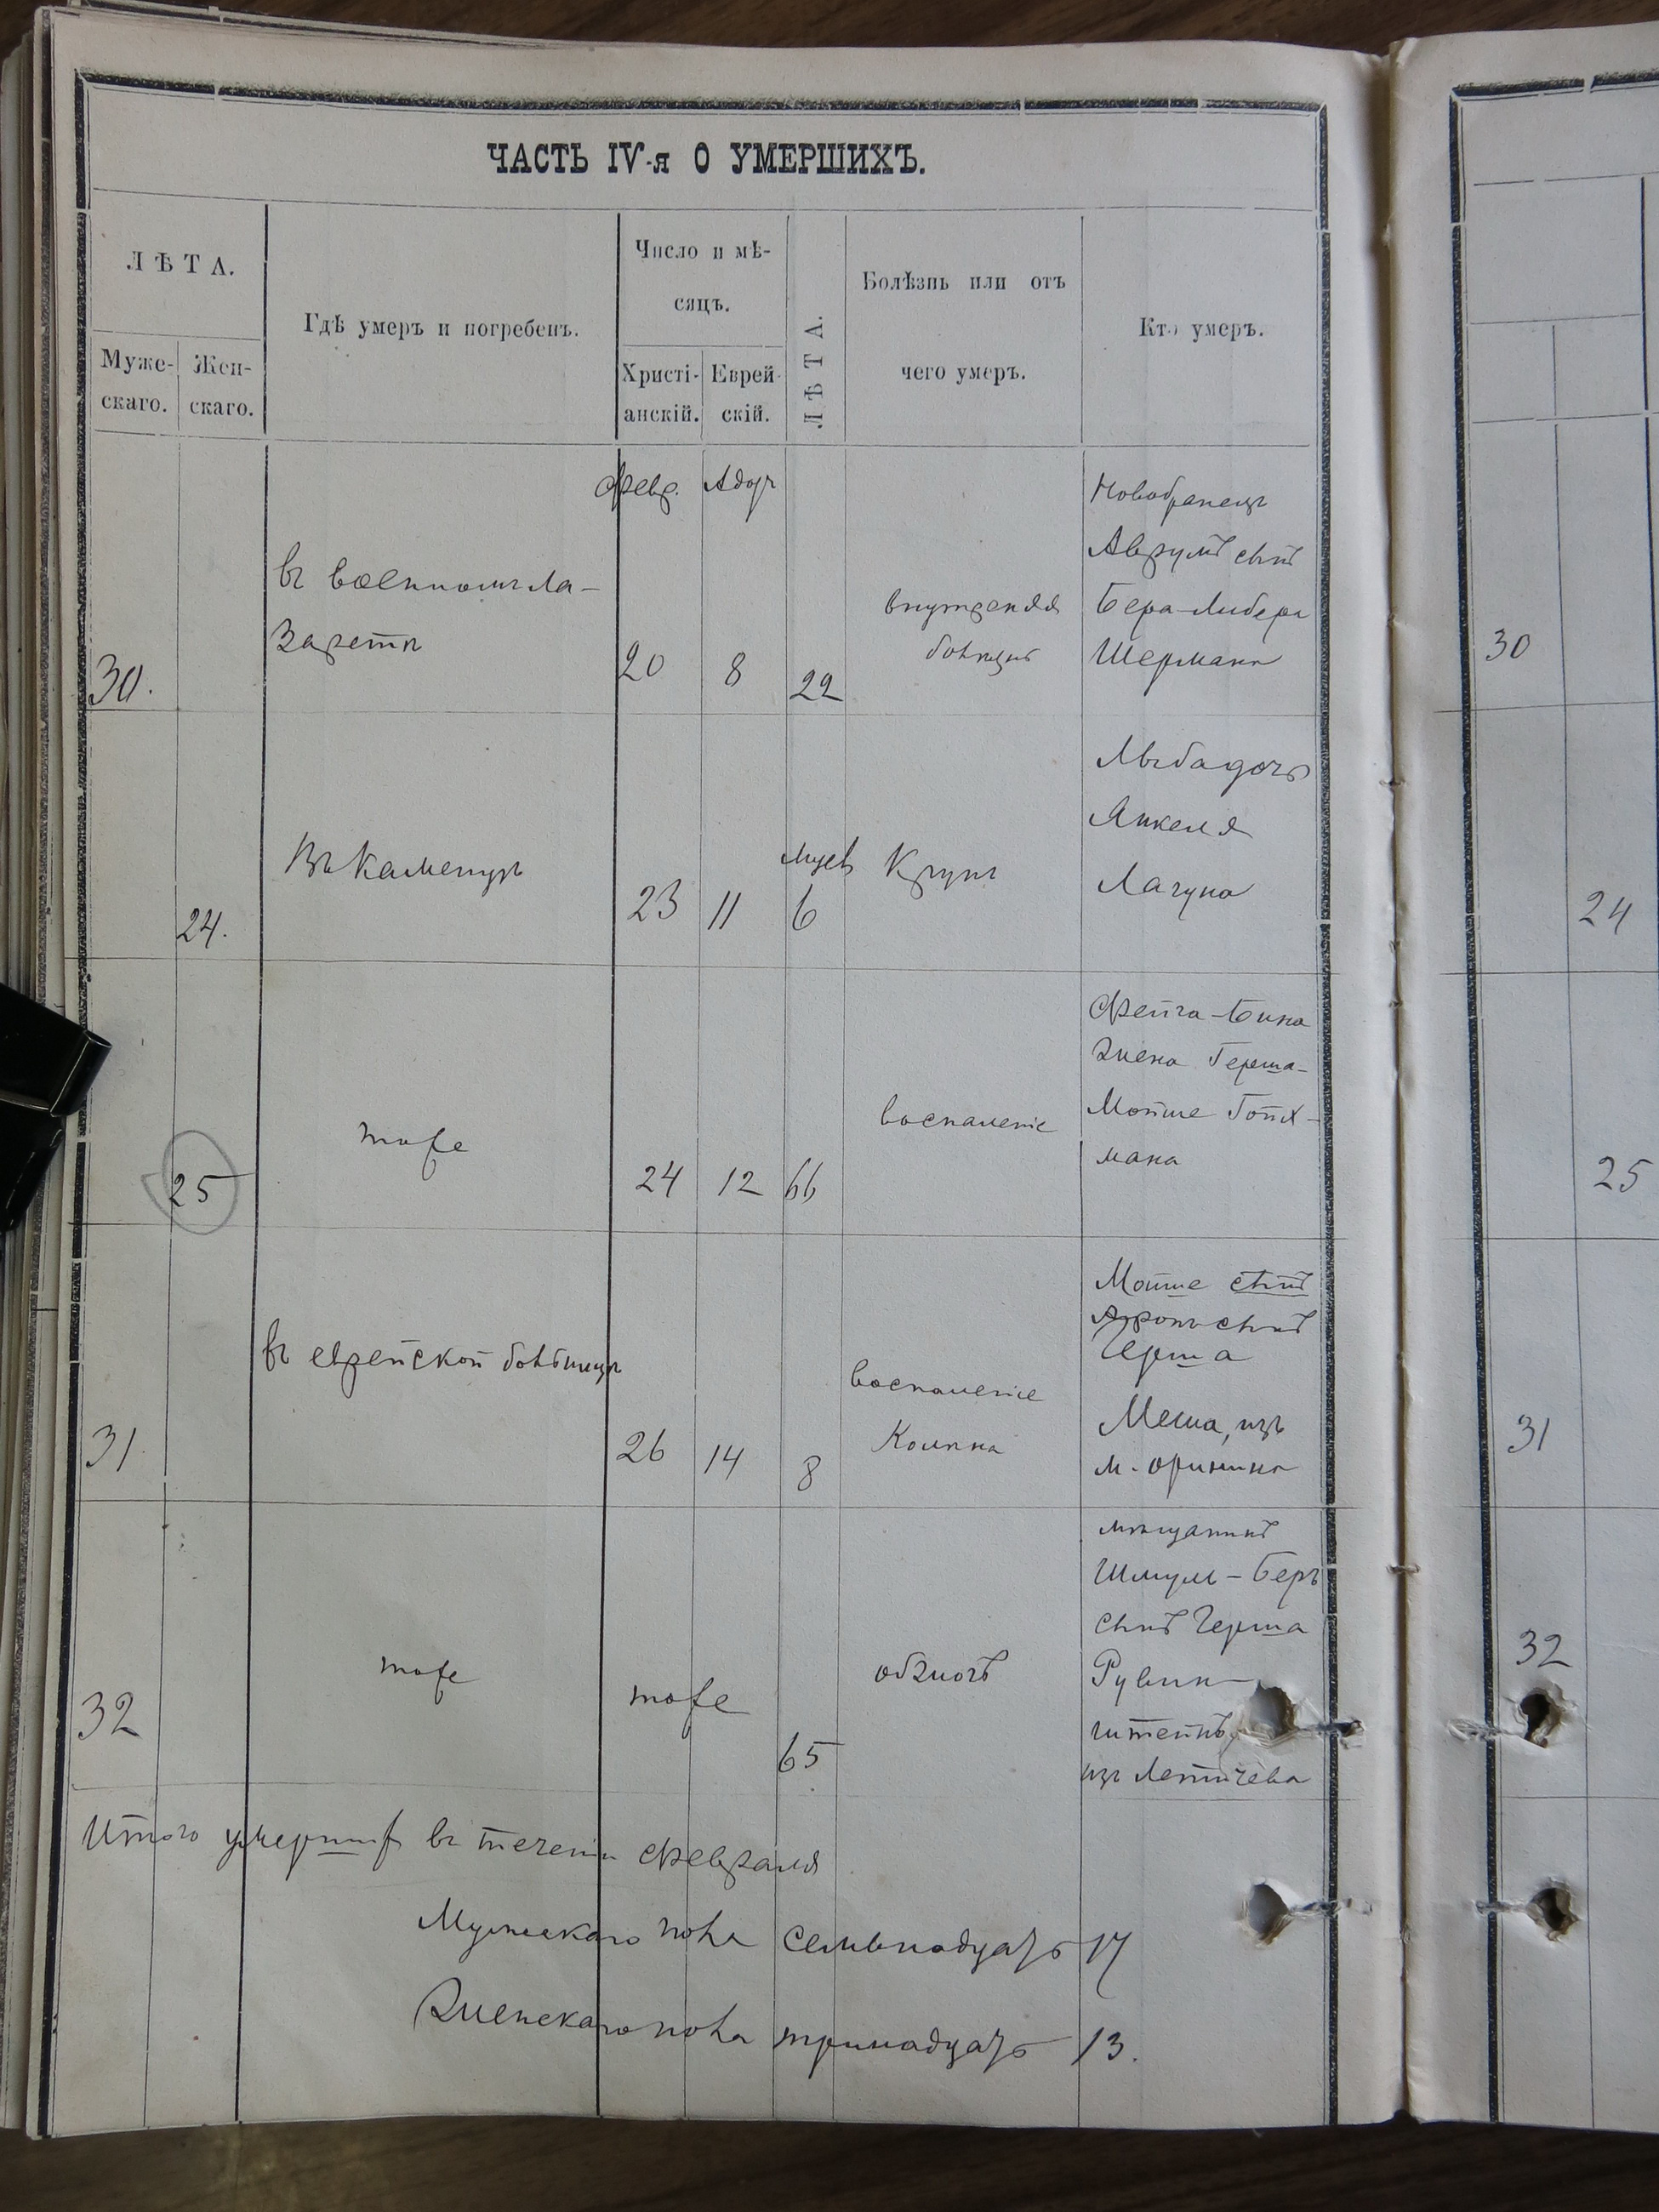 ЧАСТЬ IV-я О УМЕРШИХЪ.
ЛѢТА.
Муже-
скаго.
Жен-
скаго.
Гдѣ умеръ и погребенъ.
Число и мѣ-
сяцъ.
Христі-
анскій.
Еврей-
скій.
ЛѢТА.
Болѣзнь или отъ
чего умеръ.
Кто умеръ.
30.
въ военномъ ла-
заретѣ
Февр.
20
Адоръ
8
22
внутреняя
Новобранецъ
Аврумъ сынъ
Бера-Либера
Шермана
30
24.
Въ Каменцѣ
23
11
6
Крупъ
дочь
Янкеля
24
25
тоже
24
12
66
воспаленіе
Фейга-Бина
жена Герша-
Мойше Гойх-
мана
25
31
въ еврейской больницѣ
26
14
8
воспаленіе
Мойше сынъ
Аронъ сынъ
Герша
Меша, изъ
м. Оринина
31
32
тоже
тоже
65
обжогъ
мѣщанинъ
Шмуль-Беръ
сынъ Герша
Рувин-
штейнъ
изъ Летичева
32
Итого умершихъ въ теченіи Февраля
Мужскаго пола семьнадцать 17
Женскаго пола тринадцать 13.